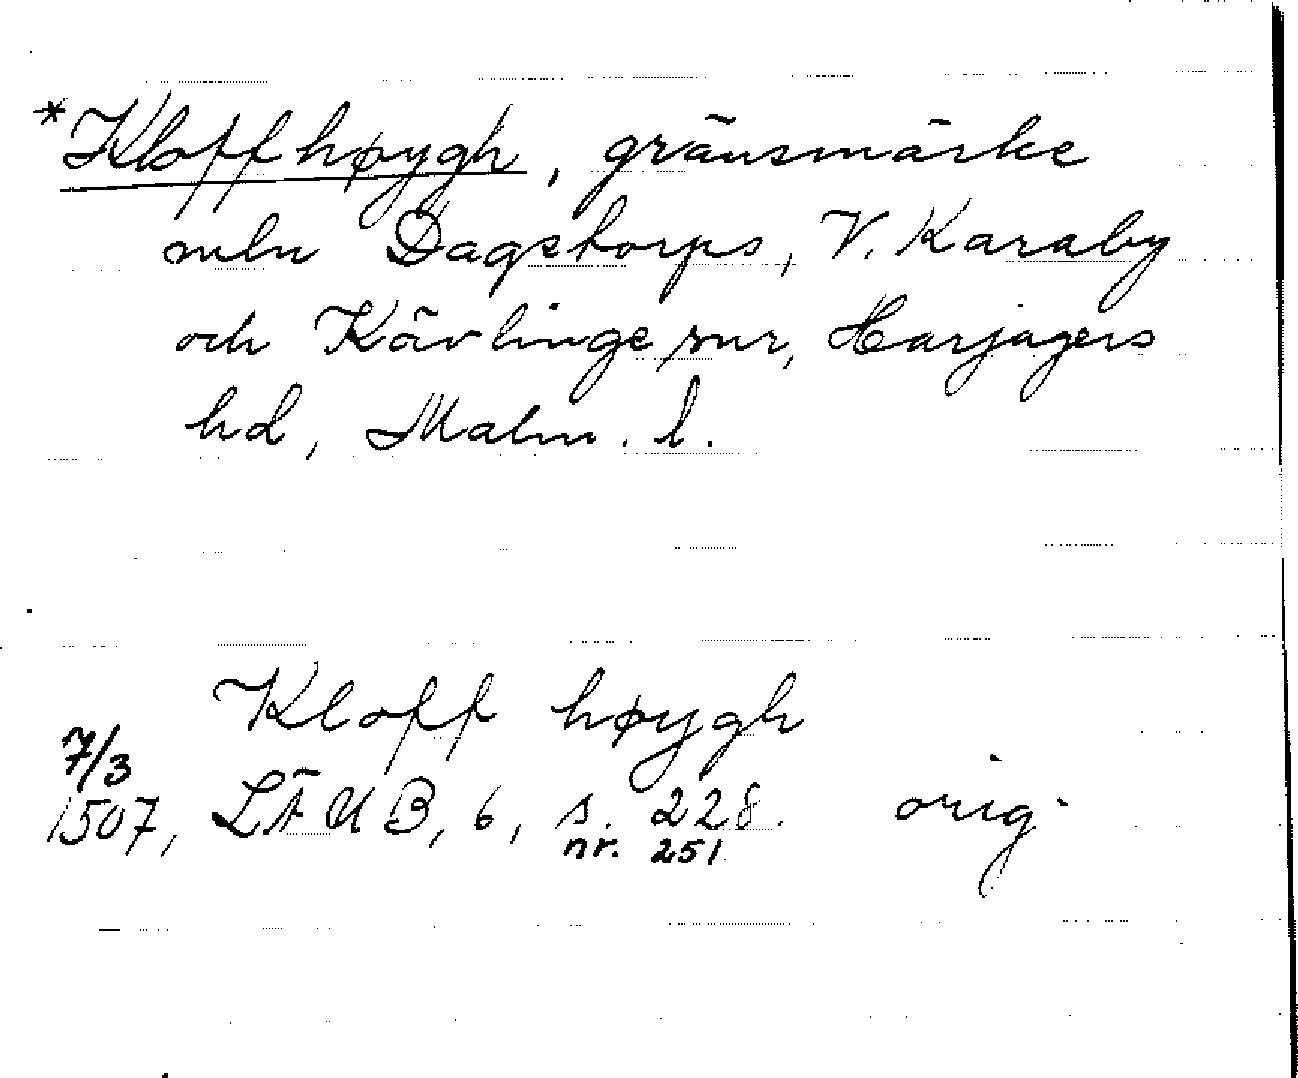 *Kloff høygh, gränsmärke
mln Dagstorps, V. Karaby
och Kävlinge snr, Harjagers
hd, Malm. l.
Kloff høygh
7/3
1507, LÄUB, 6, s. 228. orig.
nr. 251